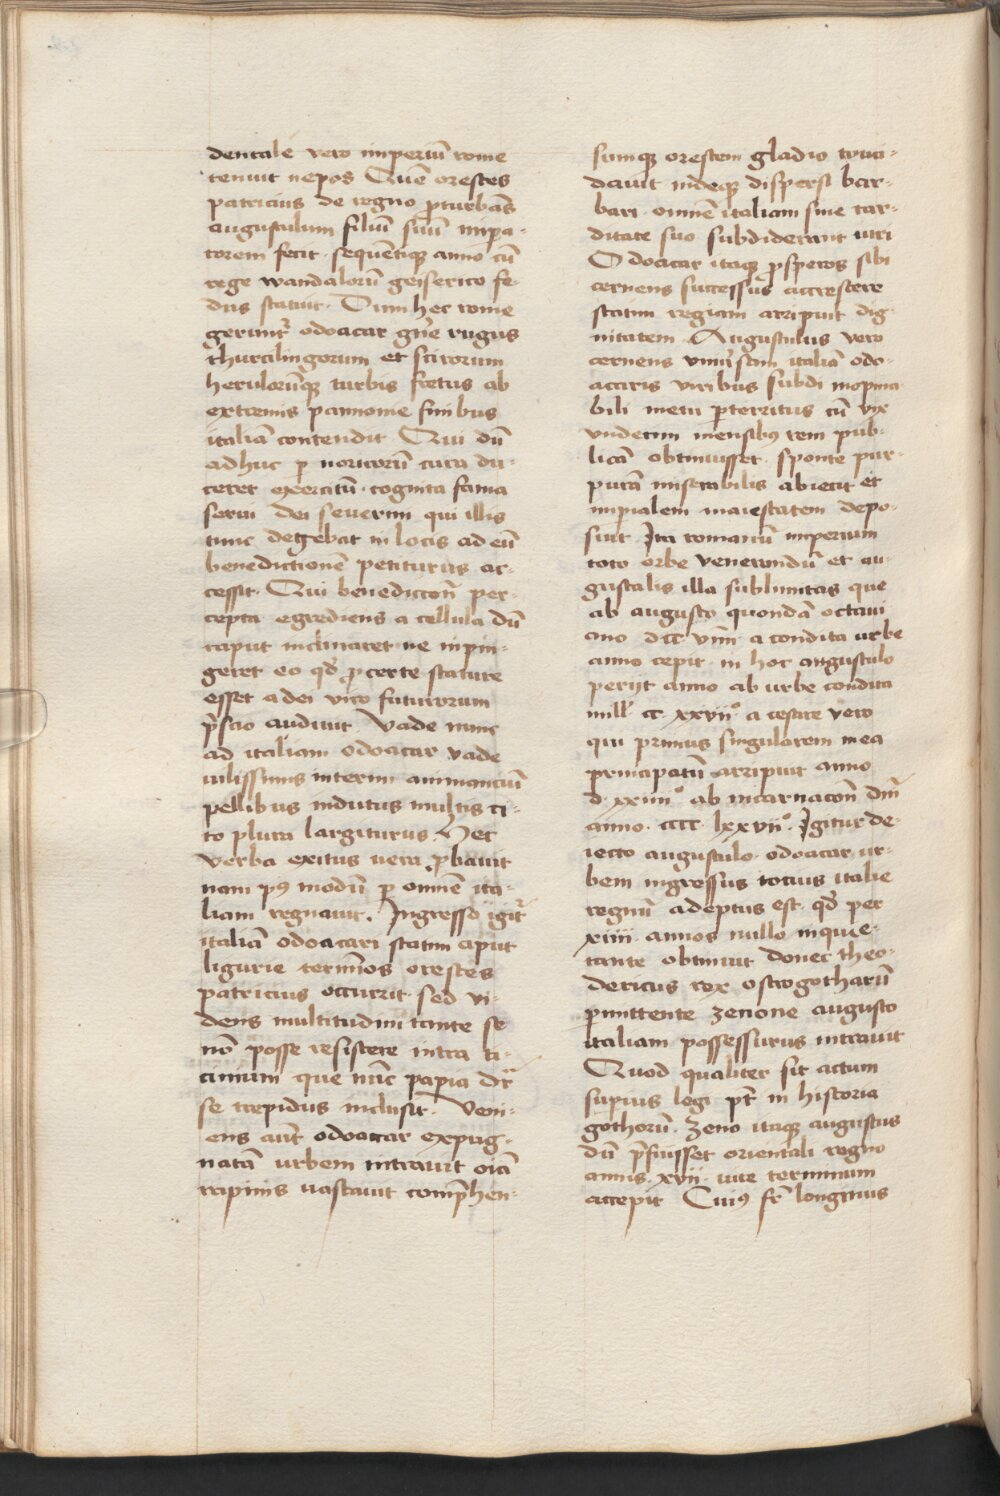 dentale vero imperiū rome
tenuit nepos Quē orestes
patricius de regno ꝓturbās
augustulum filiū suū impa-
torem fecit. sequētiqꝫ anno cū
rege wandalorū geiserico fe-
dus statuit. Dum hec rome
gerunt᷑ odoacar gn̄e rugus
thurcilingorum et scirorum
herulorūqꝫ turbis fretus ab
extremis pannonie finibus
italiā contendit Qui dū
adhuc ꝑ noricorū rura du-
ceret exercitū. cognita fama
serui dei seuerini qui illis
tunc degebat in locis ad eū
benedictionē petiturus ac-
cessit. Qui benedictōn̄ per-
cepta egrediens a cellula dū
caput inclinaret ne inpin-
geret eo qd̄ ꝓcerte stature
esset a dei viro futurorum
p̄scio audiuit Vade nunc
ad italiam odoacar vade
uilissimis interim animanciū
pellibus indutus multis ci-
to plura largiturus. Hec
verba exitus uera ꝓbauit
nam pꝰ modū ꝑ omnē ita-
liam regnauit. Ingresso igit᷑
italiā odoacari statim aput
ligurie termīos orestes
patricius occurrit. sed vi-
dens multitudini tante se
nō posse resistere intra ti-
cinium que nūc papia dr̄
se trepidus inclusit. Veni-
ens aūt odoacar expug-
natā urbem intrauit oīa
rapinis uastauit comp̄hen-
sumqꝫ orestem gladio truci-
dauit indeqꝫ dispersi bar-
bari. omnē italiam sine tar-
ditate suo subdiderunt iuri
Odoacar itaqꝫ ꝓsperos sibi
cernens successus accrescere
statim regiam arripuit dig-
nitatem Augustulus vero
cernens vniūsam italiā odo-
acaris viribus subdi inopina
bili metu ꝑterritus cū vix
vndecim mensibꝰ rem pub-
licā obtinuisset. sponte pur-
purā miserabilis abiecit et
impialem maiestatem depo-
suit Ita romanū imperium
toto orbe venerandū et au-
gustalis illa sublimitas que
ab augusto quondā octaui
ano dcc viiii a condita urbe
anno cepit. in hoc augustulo
perijt anno ab urbe condita
mill' cc. xxviiº a cesare vero
qui primus singularem mea
principatū arripuit anno
d. xxiiiiº ab incarnacōn̄ dn̄i
anno. cccc lxxviiº. Igitur de-
iecto augustulo. odoacar ur-
bem ingressus totius italie
regnū adeptus est. qd̄ per
xiiii. annos nullo inquie-
tante obtinuit donec theo-
dericus rex ostrogotharū
ꝑmittente zenone augusto
italiam possessurus intrauit
Quod qualiter sit actum
suꝑius legi pt̄ in historia
gothorū. Zeno itaqꝫ augustus
dū p̄fuisset orientali regno
annis. xvii. uite terminum
accepit Cuiꝰ fr̄ longinus